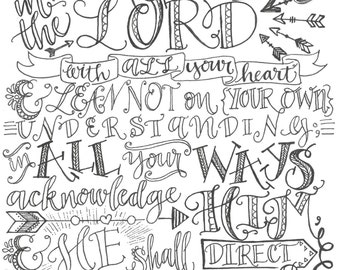 the LORD
with ALL your heart
& LEAN NOT on {YOUR OWN}
UNDERSTANDING;
in ALL your WAYS
acknowledge HIM,
& HE shall DIRECT